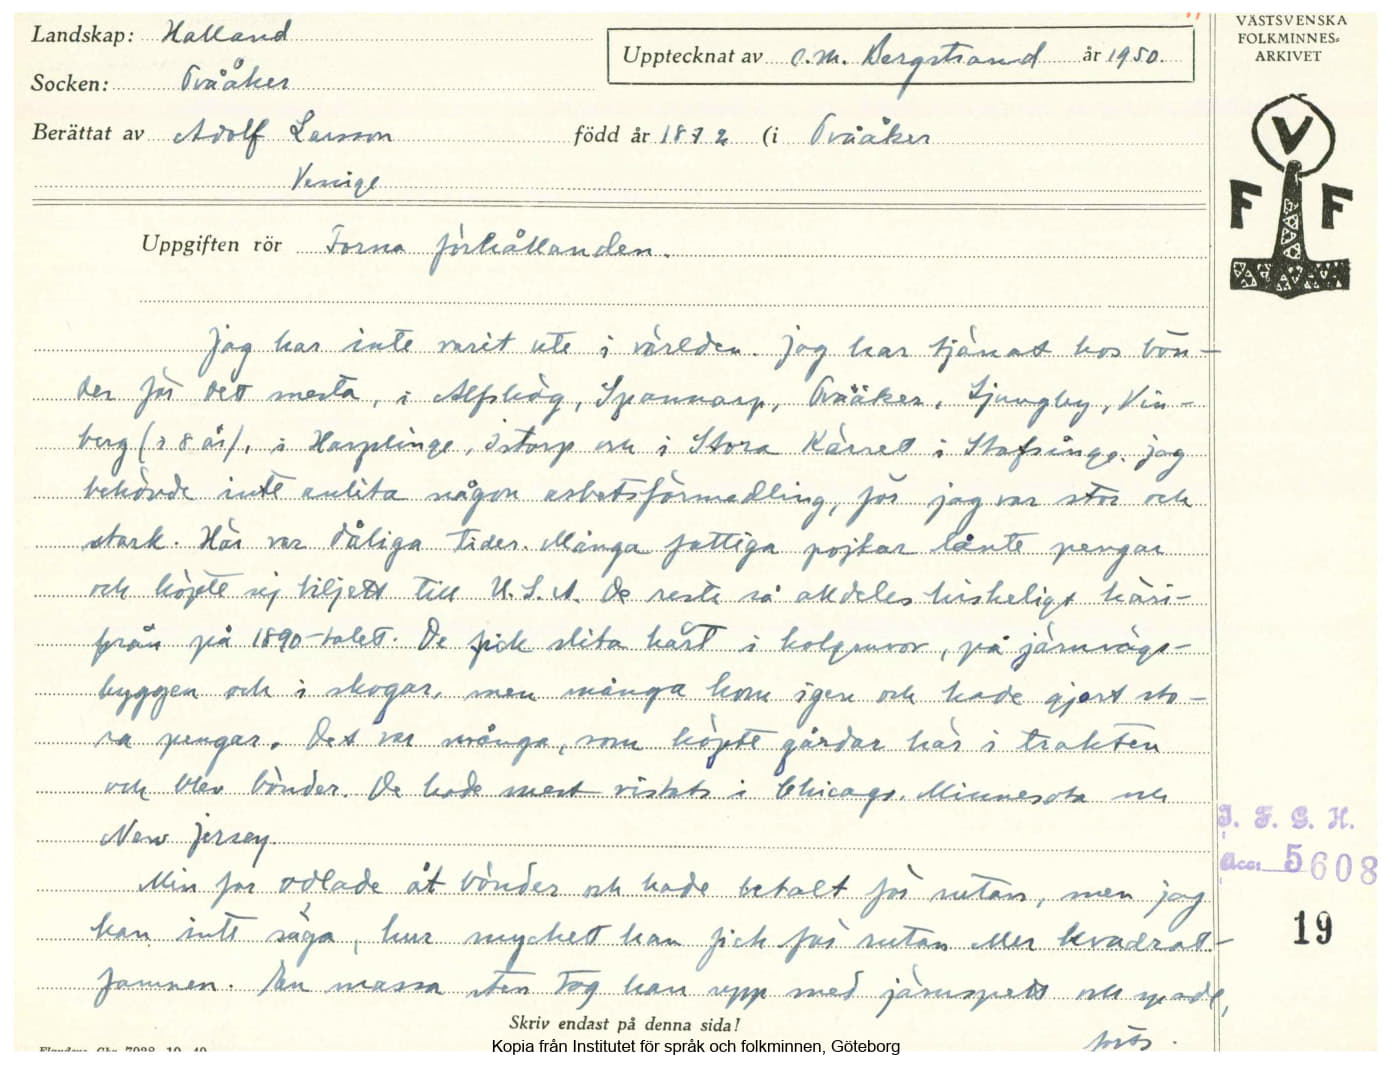 Landskap: Halland
Upptecknat av O.M. Bergstrand år 1950.
VÄSTSVENSKA
FOLKMINNES-
ARKIVET
Socken: Tvååker
Berättat av Adolf Larsson född år 1872 (i Tvååker
V
F F
Uppgiften rör Forna förhållanden.
Jag har inte varit ute i världen. Jag har tjänat hos bön-
der för det mesta, i Alfshög, Spannarp, Tvååker, Ljungby, Vin-
berg (i 8 år), i Harplinge, Istorp och i Stora Kärret i Stafsinge. Jag
behövde inte anlita någon arbetsförmedling, för jag var stor och
stark. Här var dåliga tider. Många fattiga pojkar lånte pengar
och köpte sej biljett till U.S.A. De reste så alldeles hiskeligt häri-
från på 1890-talet. De fick slita hårt i kolgruvor, på järnvägs-
byggen och i skogar, men många kom igen och hade gjort sto-
ra pengar. Det var många, som köpte gårdar här i trakten
och blev bönder. De hade mest vistats i Chicago, Minnesota och
New Jersey.
Min far odlade åt bönder och hade betalt för rutan, men jag
kan inte säga, hur mycket han fick för rutan eller kvadrat-
famnen. En massa sten tog han upp med järnspett och spade,
forts.
I. F. G. H.
acc: 5608
19
Skriv endast på denna sida!
Kopia från Institutet för språk och folkminnen, Göteborg